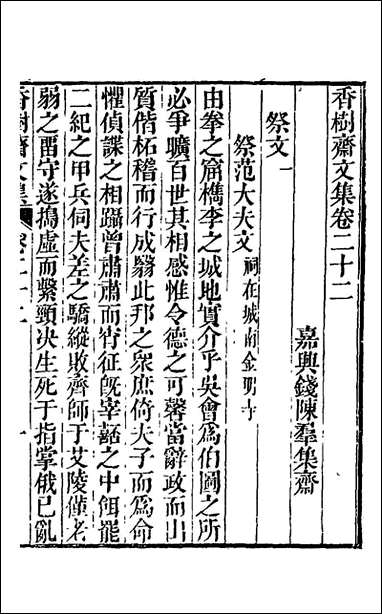 香樹齋文集卷二十二
嘉興錢陳羣集齋
祭文一
祭范大夫文祠在城南金明寺
由拳之窟檇李之城地實介乎吳會為伯圖之所
必爭曠百世其相感惟令德之可馨當辭政而出
質偕柘稽而行成繄此邦之衆庶倚夫子而為命
懼偵諜之相躡曾肅肅而宵征旣宰嚭之中餌罷
二紀之甲兵伺夫差之驕縱敗齊師于艾陵僅老
弱之畱守遂搗虛而繫頸決生死于指掌俄已亂
香樹齋文集 卷二十二 一